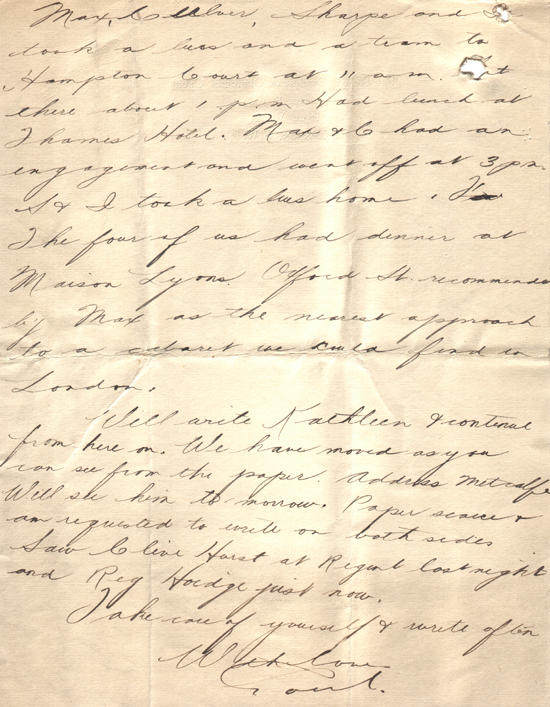 Max, C Sharpe and I
took a bus and a tram to
Hampton Court at 11 a.m. Got
there about 1 p.m Had lunch at
Thames Hotel. Max & C had an
engagement and went off at 3 pm.
S & I took a bus home.
The four of us had dinner at
Maison Lyons. Oxford St. recommended
by Max as the nearest approach
to a cabaret we could find in
London.
Will write Kathleen & continue
from here on. We have moved as you
can see from the paper. Address Metcalfe
Will see him to morrow. Paper scarce &
am requested to write on both sides
Saw Clive Hurst at Regent last night
and Reg Hoidge just now.
Take care of yourself & write often
With love